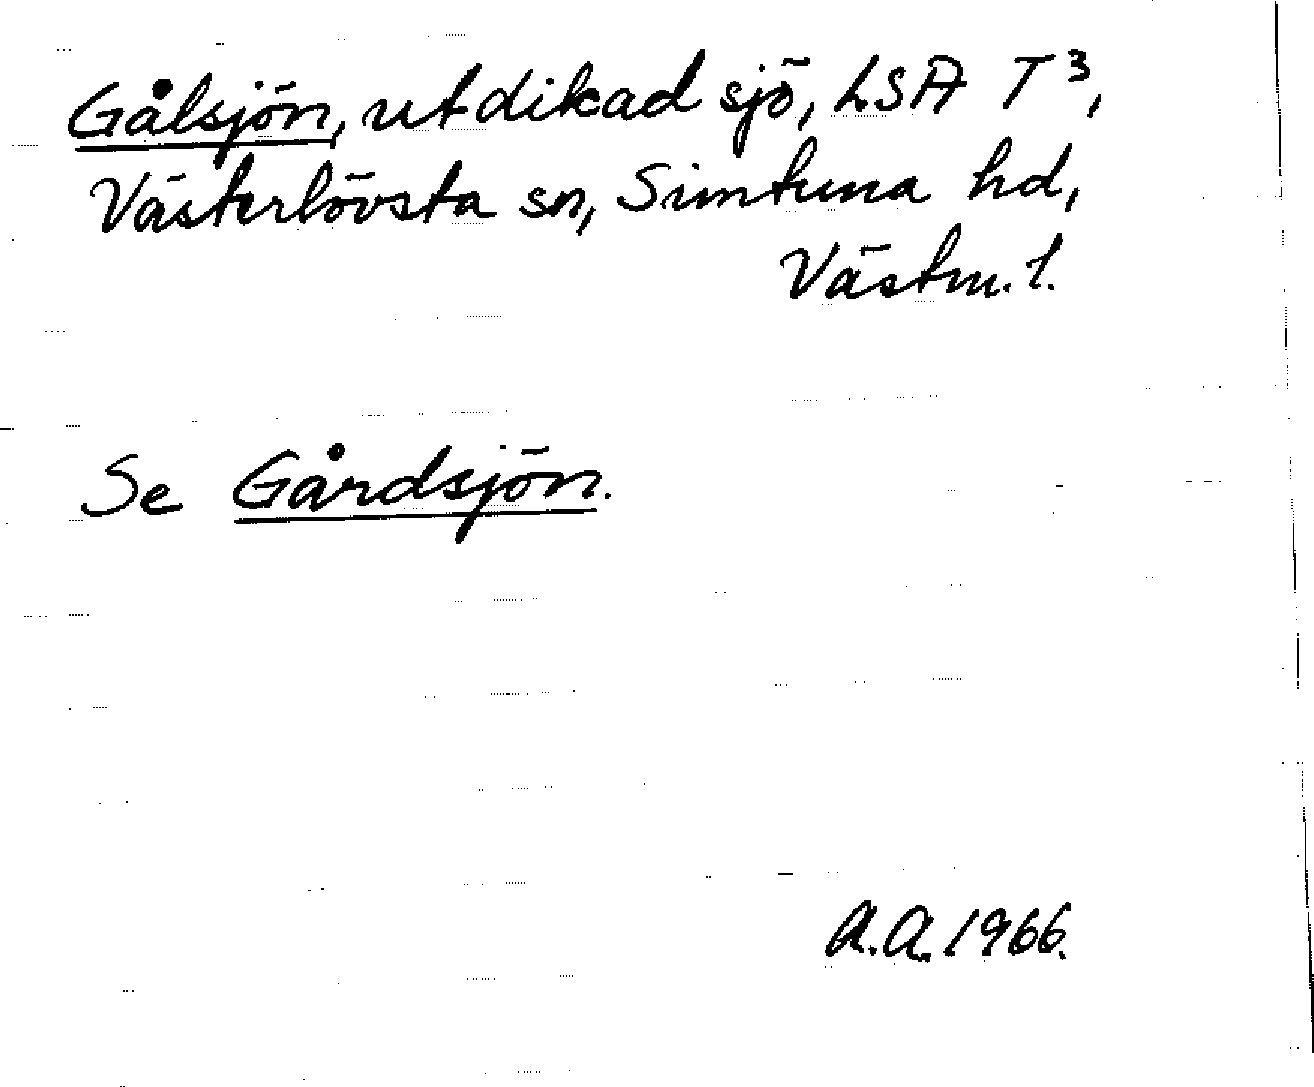 Gålsjön, utdikad sjö, LSA T³,
Västerlövsta sn, Simtuna hd,
Västm. l.
Se Gårdsjön.
A.A. 1966.